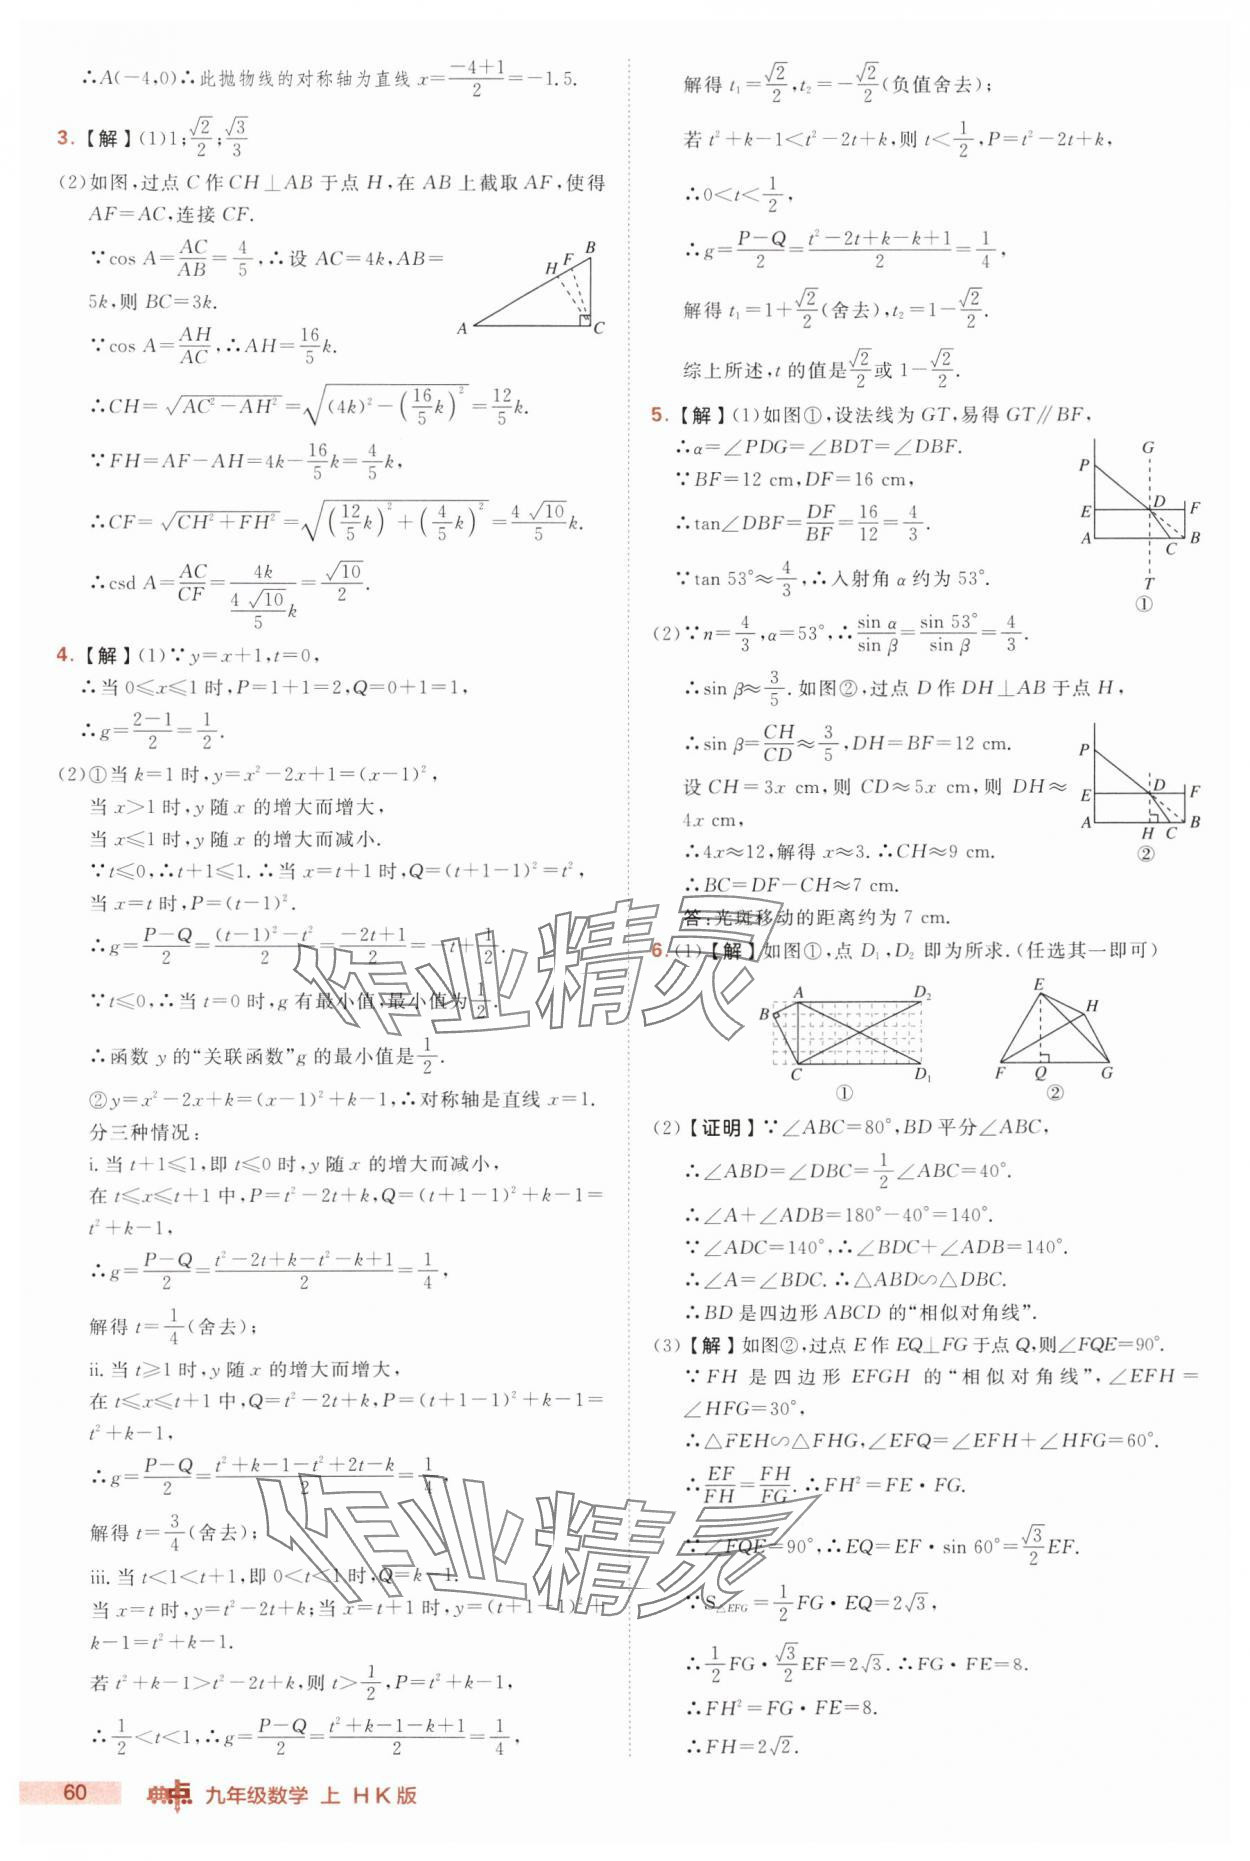 ∴A(-4,0)∴此抛物线的对称轴为直线 x=\frac{-4+1}{2}=-1.5.
3.【解】(1)1;\frac{\sqrt{2}}{2};\frac{\sqrt{3}}{3}
(2)如图,过点 C 作 CH⊥AB 于点 H,在 AB 上截取 AF,使得
AF=AC,连接 CF.
∵cos A=\frac{AC}{AB}=\frac{4}{5},∴设 AC=4k,AB=
5k,则 BC=3k.
∵cos A=\frac{AH}{AC},∴AH=\frac{16}{5}k.
A H F B C
∴CH=\sqrt{AC²-AH²}=\sqrt{(4k)²-(\frac{16}{5}k)²}=\frac{12}{5}k.
∵FH=AF-AH=4k-\frac{16}{5}k=\frac{4}{5}k,
∴CF=\sqrt{CH²+FH²}=\sqrt{(\frac{12}{5}k)²+(\frac{4}{5}k)²}=\frac{4\sqrt{10}}{5}k.
∴csd A=\frac{AC}{CF}=\frac{4k}{\frac{4\sqrt{10}}{5}k}=\frac{\sqrt{10}}{2}.
4.【解】(1)∵y=x+1,t=0,
∴当 0≤x≤1 时,P=1+1=2,Q=0+1=1,
∴g=\frac{2-1}{2}=\frac{1}{2}.
(2)①当 k=1 时,y=x²-2x+1=(x-1)²,
当 x>1 时,y 随 x 的增大而增大,
当 x≤1 时,y 随 x 的增大而减小.
∵t≤0,∴t+1≤1.∴当 x=t+1 时,Q=(t+1-1)²=t²,
当 x=t 时,P=(t-1)².
∴g=\frac{P-Q}{2}=\frac{(t-1)²-t²}{2}=\frac{-2t+1}{2}=-t+\frac{1}{2}.
∵t≤0,∴当 t=0 时,g 有最小值,最小值为\frac{1}{2}.
∴函数 y 的“关联函数”g 的最小值是\frac{1}{2}.
②y=x²-2x+k=(x-1)²+k-1,∴对称轴是直线 x=1.
分三种情况:
i.当 t+1≤1,即 t≤0 时,y 随 x 的增大而减小,
在 t≤x≤t+1 中,P=t²-2t+k,Q=(t+1-1)²+k-1=
t²+k-1,
∴g=\frac{P-Q}{2}=\frac{t²-2t+k-t²-k+1}{2}=\frac{1}{4},
解得 t=\frac{1}{4}(舍去);
ii.当 t≥1 时,y 随 x 的增大而增大,
在 t≤x≤t+1 中,Q=t²-2t+k,P=(t+1-1)²+k-1=
t²+k-1,
∴g=\frac{P-Q}{2}=\frac{t²+k-1-t²+2t-k}{2}=\frac{1}{4},
解得 t=\frac{3}{4}(舍去);
iii.当 t<1<t+1,即 0<t<1 时,Q=k-1.
当 x=t 时,y=t²-2t+k;当 x=t+1 时,y=(t+1-1)²+
k-1=t²+k-1.
若 t²+k-1>t²-2t+k,则 t>\frac{1}{2},P=t²+k-1,
∴\frac{1}{2}<t<1,∴g=\frac{P-Q}{2}=\frac{t²+k-1-k+1}{2}=\frac{1}{4},
解得 t₁=\frac{\sqrt{2}}{2},t₂=-\frac{\sqrt{2}}{2}(负值舍去);
若 t²+k-1<t²-2t+k,则 t<\frac{1}{2},P=t²-2t+k,
∴0<t<\frac{1}{2},
∴g=\frac{P-Q}{2}=\frac{t²-2t+k-k+1}{2}=\frac{1}{4},
解得 t₁=1+\frac{\sqrt{2}}{2}(舍去),t₂=1-\frac{\sqrt{2}}{2}.
综上所述,t 的值是\frac{\sqrt{2}}{2}或 1-\frac{\sqrt{2}}{2}.
5.【解】(1)如图①,设法线为 GT,易得 GT∥BF,
∴α=∠PDG=∠BDT=∠DBF.
∵BF=12 cm,DF=16 cm,
∴tan∠DBF=\frac{DF}{BF}=\frac{16}{12}=\frac{4}{3}.
∵tan 53°≈\frac{4}{3},∴入射角 α 约为 53°.
P G E D F A C B T
①
(2)∵n=\frac{4}{3},α=53°,∴\frac{sin α}{sin β}=\frac{sin 53°}{sin β}=\frac{4}{3}.
∴sin β≈\frac{3}{5}.如图②,过点 D 作 DH⊥AB 于点 H,
∴sin β=\frac{CH}{CD}≈\frac{3}{5},DH=BF=12 cm.
设 CH=3x cm,则 CD≈5x cm,则 DH≈
4x cm,
P E D F A H C B
②
∴4x≈12,解得 x≈3.∴CH≈9 cm.
∴BC=DF-CH≈7 cm.
答:光斑移动的距离约为 7 cm.
6.(1)【解】如图①,点 D₁,D₂ 即为所求.(任选其一即可)
A D₂ B C D₁
①
E H F Q G
②
(2)【证明】∵∠ABC=80°,BD 平分∠ABC,
∴∠ABD=∠DBC=\frac{1}{2}∠ABC=40°.
∴∠A+∠ADB=180°-40°=140°.
∵∠ADC=140°,∴∠BDC+∠ADB=140°.
∴∠A=∠BDC.∴△ABD∽△DBC.
∴BD 是四边形 ABCD 的“相似对角线”.
(3)【解】如图②,过点 E 作 EQ⊥FG 于点 Q,则∠FQE=90°.
∵FH 是四边形 EFGH 的“相似对角线”,∠EFH=
∠HFG=30°,
∴△FEH∽△FHG,∠EFQ=∠EFH+∠HFG=60°.
∴\frac{EF}{FH}=\frac{FH}{FG}.∴FH²=FE·FG.
∵∠FQE=90°,∴EQ=EF·sin 60°=\frac{\sqrt{3}}{2}EF.
∵S△EFG=\frac{1}{2}FG·EQ=2\sqrt{3},
∴\frac{1}{2}FG·\frac{\sqrt{3}}{2}EF=2\sqrt{3}.∴FG·FE=8.
∴FH²=FG·FE=8.
∴FH=2\sqrt{2}.
作业精灵
作业精灵
60 典点 九年级数学 上 HK版